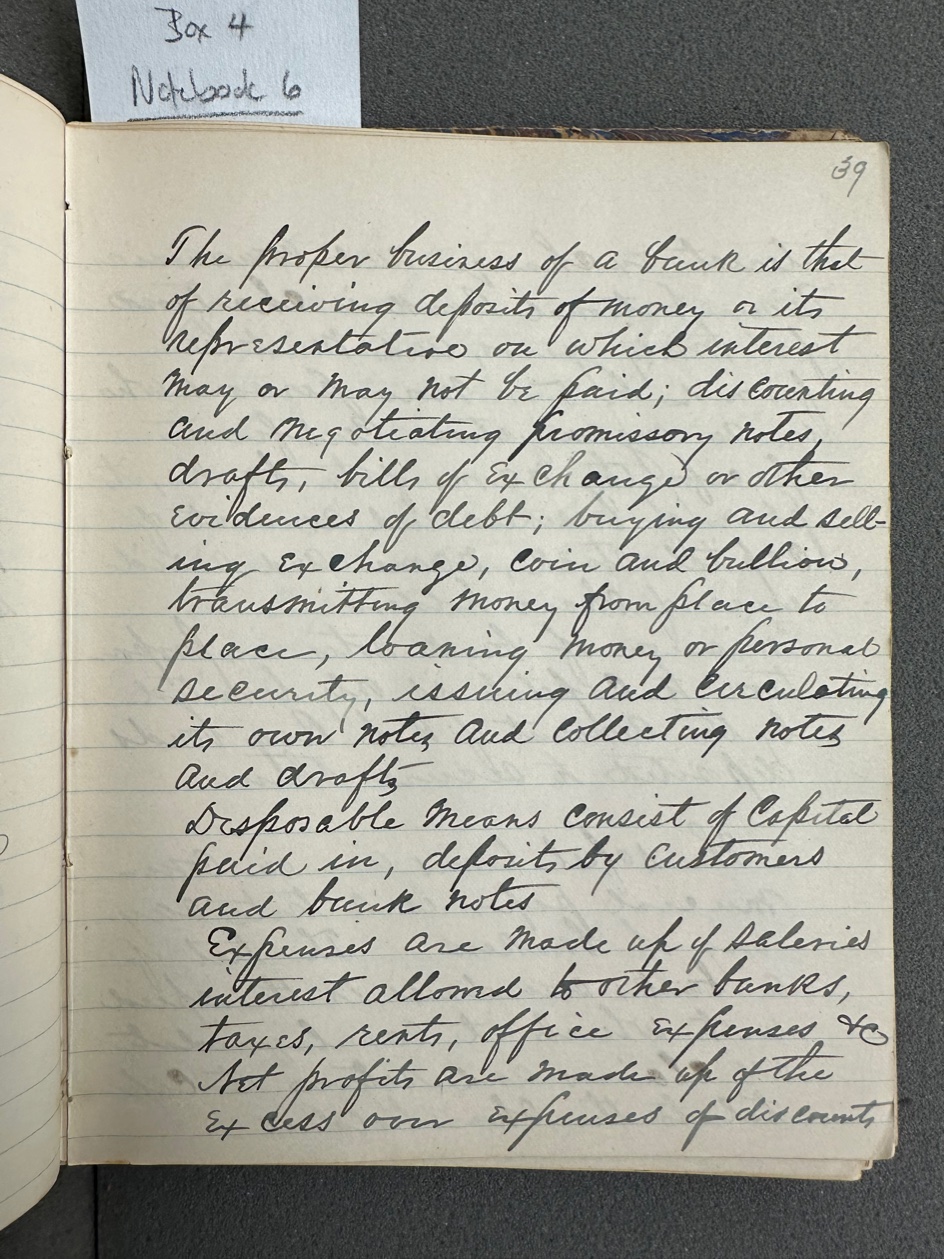 Box 4
Notebook 6
39
The proper business of a bank is that
of receiving deposits of money or its
representative on which interest
may or may not be paid; discounting
and negotiating promissory notes,
drafts, bills of Exchange or other
Evidences of debt; buying and sell-
ing Exchange, Coin and bullion,
transmitting money from place to
place, loaning money or personal
security, issuing and circulating
its own notes and collecting notes
and drafts
Disposable means consist of Capital
paid in, deposits by customers
and bank notes
Expenses are made up of saleries
interest allowed to other banks,
taxes, rents, office expenses &c
Net profits are made up of the
Excess over expenses of discounts